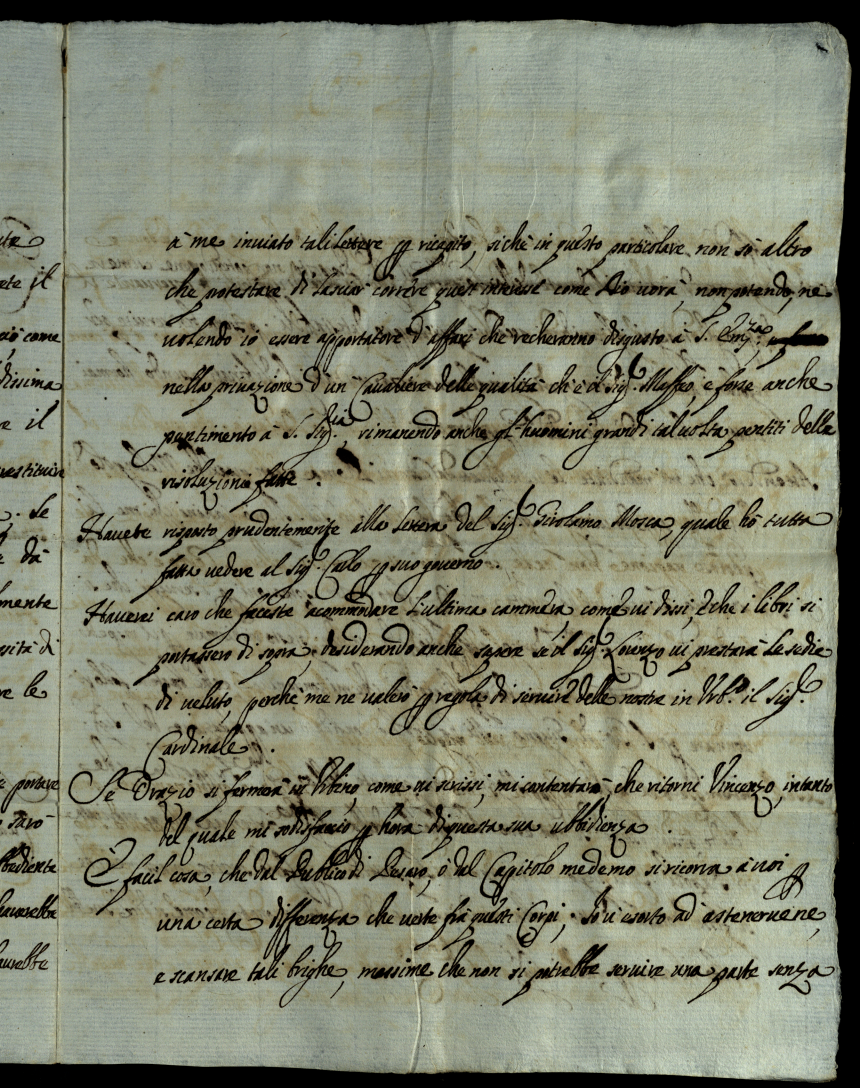 à me inviato tali lettere p ricapito, si chè in questo particolare non sò altro
che protestare di lasciar correre questi interessi come Dio uorà, non potendo, ne
uolendo io essere apportatore d'affari che recheranno disgusto à S. Emza.
nella priuazione d'un Caualiere delle qualità ch'è il Sigr. Maffeo, e forse anche
pentimento à S. Sigria, rimanendo anche gl'huomini grandi tal uolta pentiti delle
risoluzioni fatte.
Hauete risposto prudentemente alla lettera del Sigr. Girolamo Mosca, quale hò tutta
fatta uedere al Sigr. Carlo p suo gouerno.
Hauerei caro che faceste accommodare l'ultima cammera, come ui dissi, e che i libri si
portassero di sopra, desiderando anche sapere se il Sigr. Lorenzo ui prestarà le sedie
di ueluto, perchè me ne valerò p regola di seruire delle nostre in Urb.o il Sigr.
Cardinale.
Se Orazio si fermerà in Urbino, come ui scrissi, mi contentarò, che ritorni Vincenzo, intanto
del quale mi sodisfaccio p hora di questa sua ubbidienza.
È facil cosa, che dal Publico di Pesaro, o dal Capitolo medemo si ricorra à uoi p
una certa differenza che uerte frà questi Corpi; Io ui esorto ad astenerue ne,
e scansare tali brighe, massime che non si potrebbe seruire una parte senza
ete il
cciò come
dissima
re il
restituire
Se
e dà
lmente
sità di
re le
portare
sarò
bbediente
hauerebbe
aurebbe